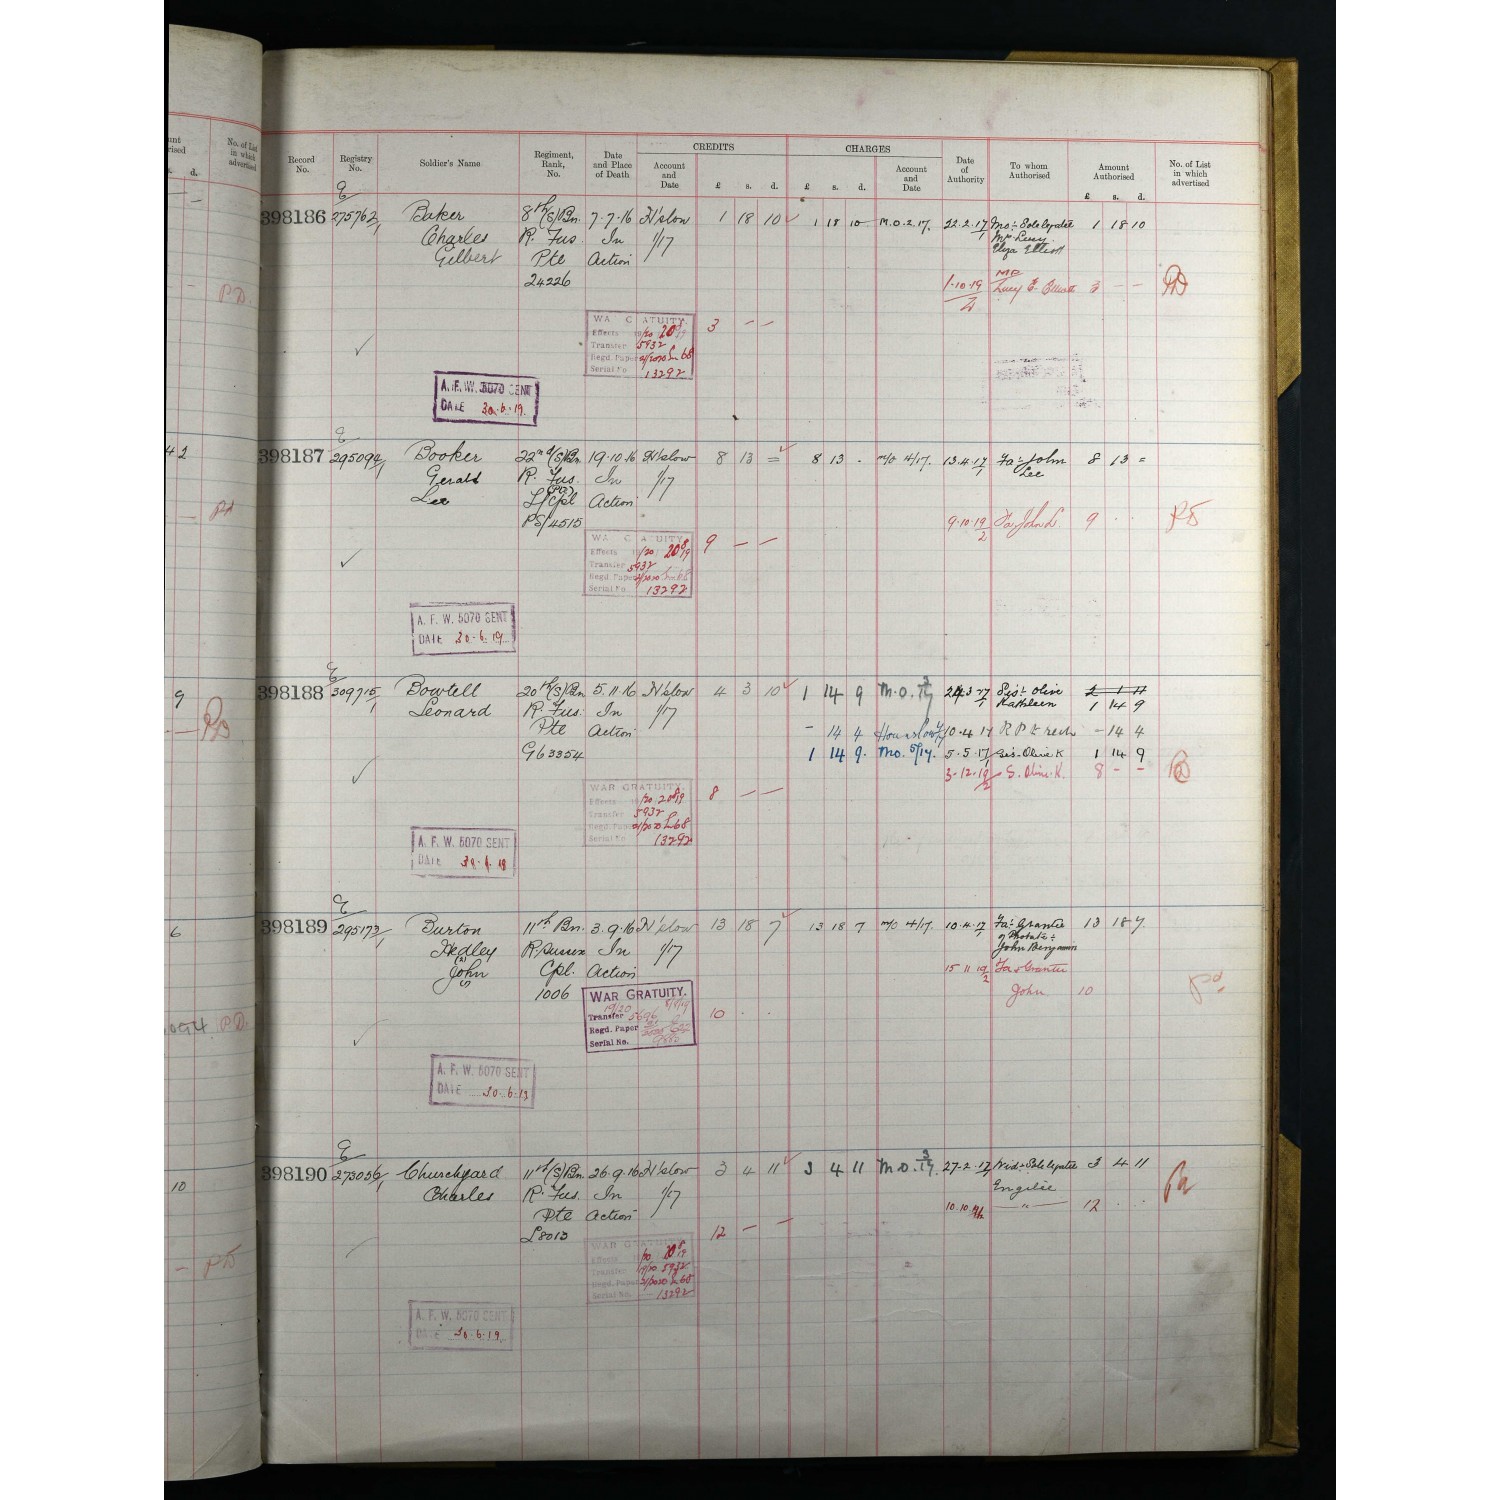 CREDITS CHARGES
Record No. Registry No. Soldier's Name Regiment, Rank, No. Date and Place of Death Account and Date £ s. d. £ s. d. Account and Date Date of Authority To whom Authorised Amount Authorised £ s. d. No. of List in which advertised
No. of List in which advertised
s. d.
398186 275762/1 Baker 8th (S) Bn. 7.7.16 H'slow 1 18 10 1 18 10 M.O. 2.17. 22.2.17/1 Mo:- Sole legatee 1 18 10
Charles R. Fus. In 1/17 Mrs Lucy
Gilbert Pte Action Eliza Elliott
24226 1.10.19/2 Lucy E. Elliott 3 - -
PD.
WAR GRATUITY. 3 - -
Effects
Transfer 5932
Regd. Paper
Serial No 13292
A.F.W. 5070 SENT
DATE 30.6.19.
42
398187 295099/1 Booker 22nd (S) Bn. 19.10.16 H'slow 8 13 = 8 13 - m/o 4/17. 13.4.17/1 Fa:- John 8 13 =
Gerald R. Fus. In 1/17 Lee
Lee L/Cpl Action
PS/4515 9.10.19/2 Fa. John L. 9 . .
WAR GRATUITY. 9 - -
Effects
Transfer 5932
Regd. Paper
Serial No 13292
A.F.W. 5070 SENT
DATE 30.6.19
9
398188 309715/1 Bowtell 20th (S) Bn 5.11.16 H'slow 4 3 10 1 14 9 M.O. 3/17 24.3.17/1 Sis:- Olive
Leonard R. Fus. In 1/17 Kathleen 1 14 9
Pte Action - 14 4 Hounslow 10.4.17 R P & rech - 14 4
G63354 1 14 9. Mo. 5/17. 5.5.17/1 Sis- Olive K 1 14 9
3.12.19/2 S. Olive K. 8 - -
WAR GRATUITY. 8 - -
Effects
Transfer 5932
Regd. Paper
Serial No 13292
A.F.W. 5070 SENT
DATE
6
398189 295173/1 Burton 11th Bn. 3.9.16 H'slow 13 18 7 13 18 7 m/o 4/17. 10.4.17/1 Fa:- Grantee 13 18 7.
Hedley R. Sussex In 1/17 of Probate:-
John Cpl. Action John Benjamin
1006 15.11.19/2 Fa & Grantee
John 10
WAR GRATUITY. 10 . .
Transfer
Regd. Paper
Serial No.
PD.
A.F.W. 5070 SENT
DATE 30.6.19
10
398190 273056/1 Churchyard 11th (S) Bn. 26.9.16 H'slow 3 4 11 3 4 11 M.O. 3/17. 27.2.17 Wid:- Sole legatee 3 4 11
Charles R. Fus. In 1/17
Pte Action 12 . .
L8013 12 - -
WAR GRATUITY.
Effects
Transfer 5932
Regd. Paper
Serial No. 13292
A.F.W. 5070 SENT
DATE 30.6.19.